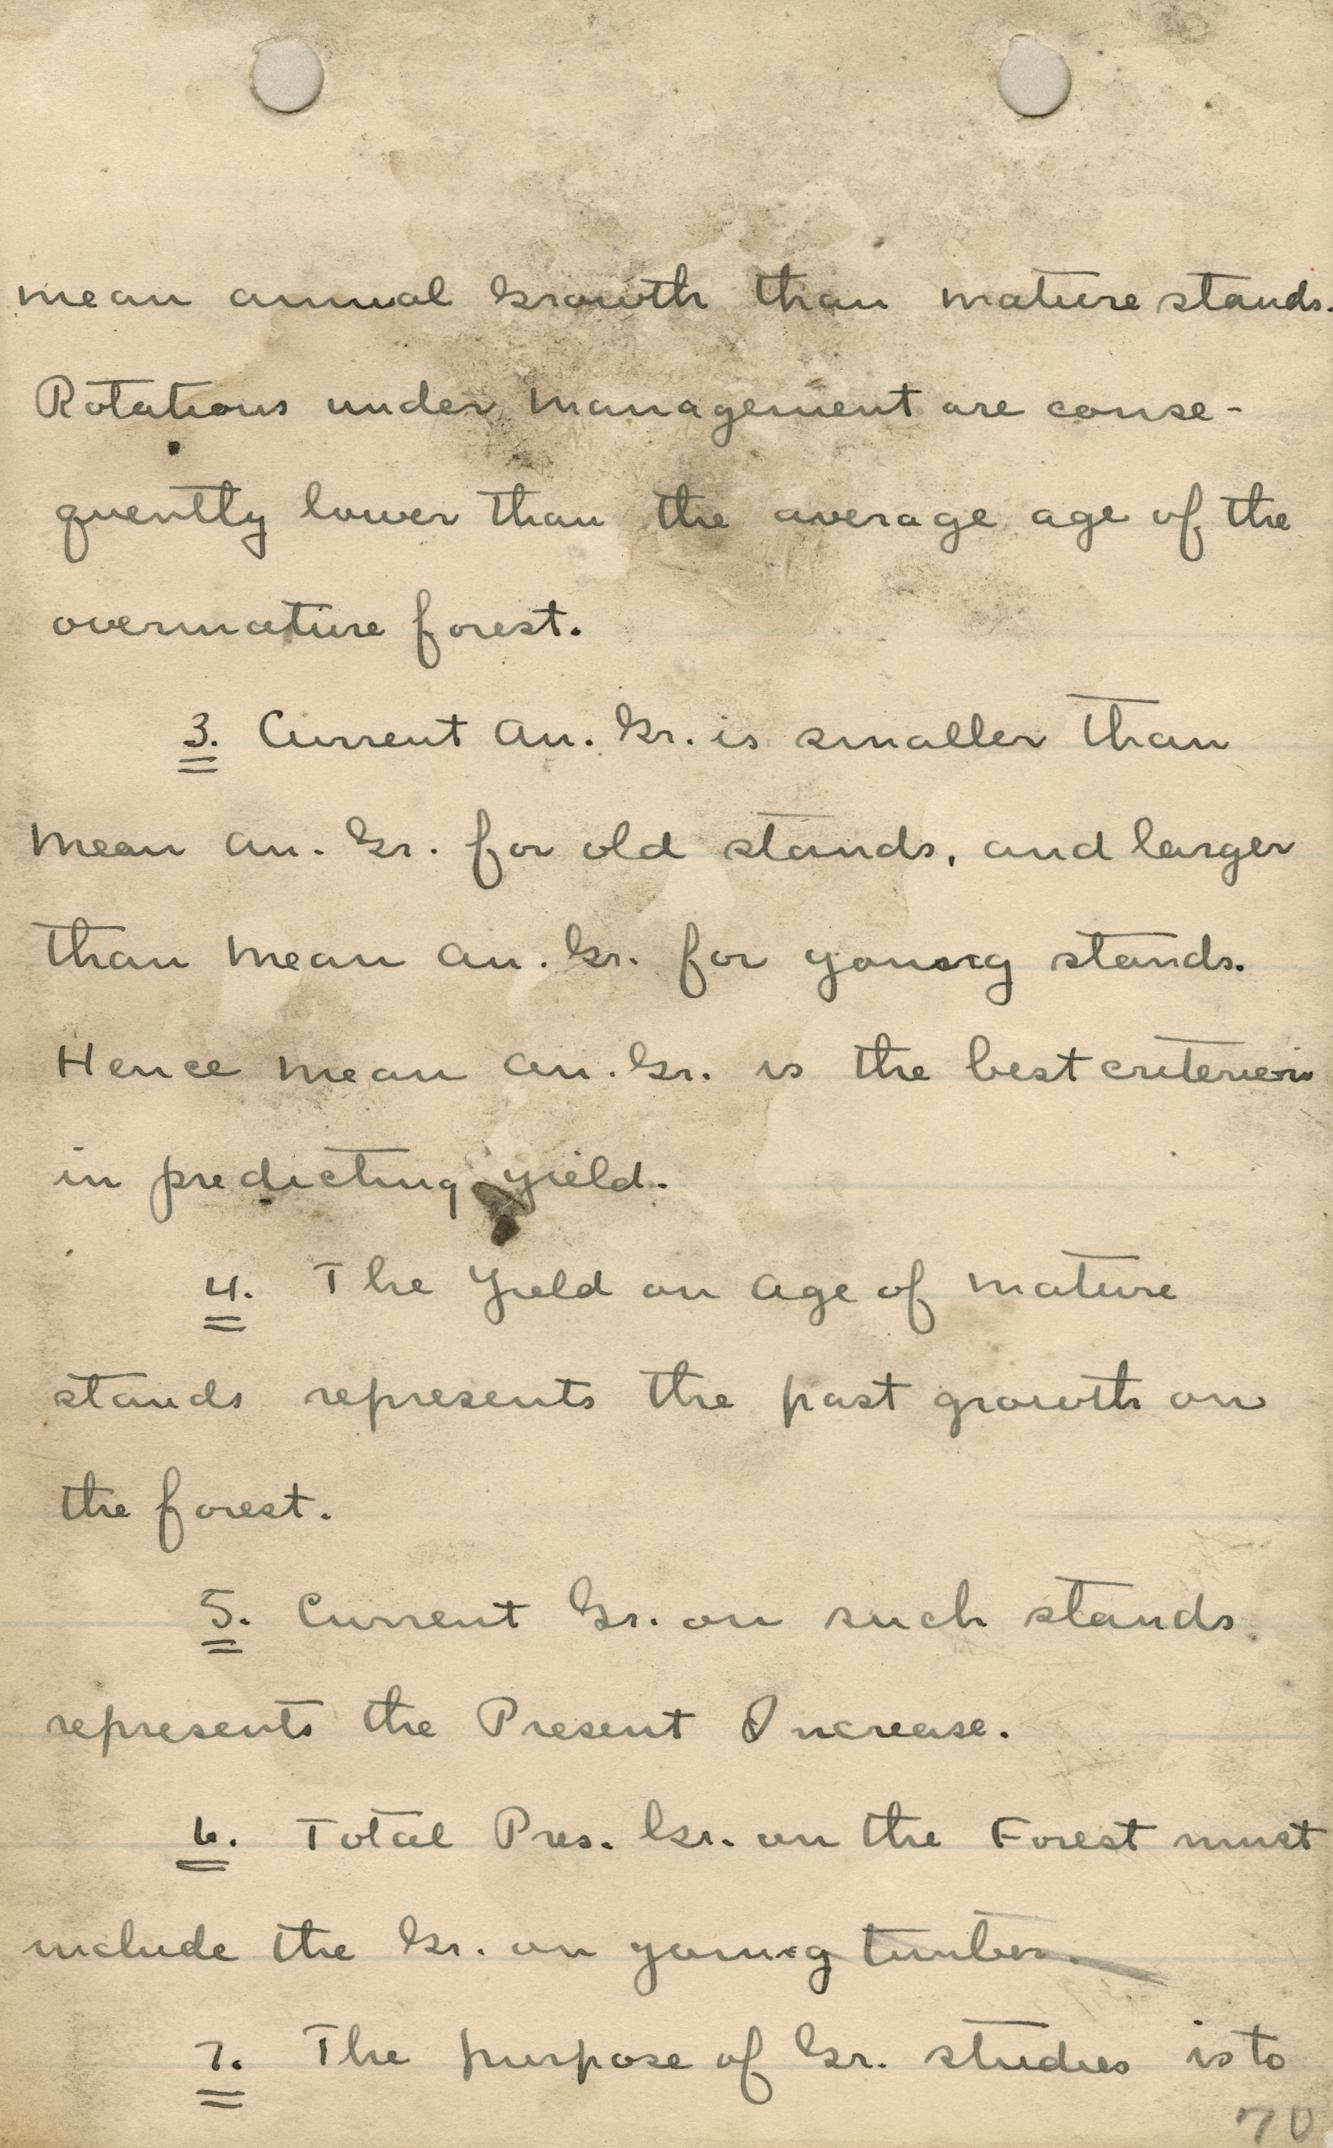 mean annual Growth than mature stands.
Rotations under management are conse-
quently lower than the average age of the
overmature forest.
3. Current an. Gr. is smaller than
mean an. Gr. for old stands, and larger
than mean an. Gr. for young stands.
Hence mean an. Gr. is the best criterion
in predicting yield.
4. The Yield on age of mature
stands represents the past growth on
the forest.
5. Current Gr. on such stands
represents the Present Increase.
6. Total Pres. Gr. on the Forest must
include the Gr. on young timber.
7. The purpose of Gr. studies is to
70